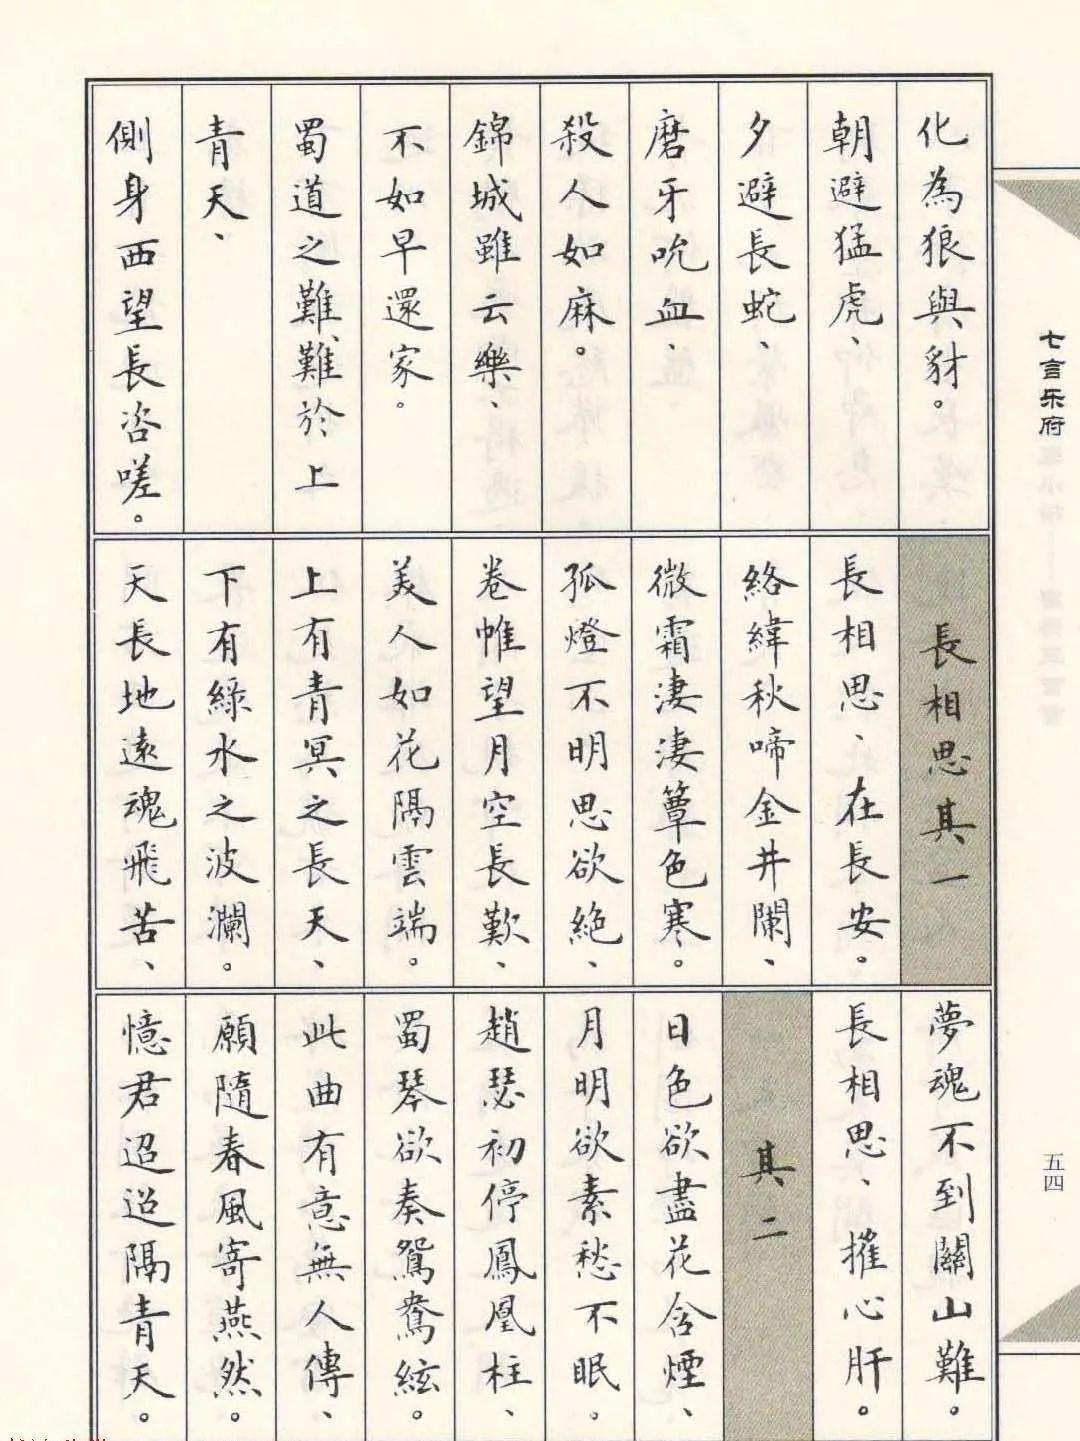 化為狼與豺。
朝避猛虎、
夕避長蛇、
磨牙吮血、
殺人如麻。
錦城雖云樂、
不如早還家。
蜀道之難、難於上
青天、
側身西望長咨嗟。
長相思其一
長相思、在長安。
絡緯秋啼金井闌、
微霜淒淒簟色寒。
孤燈不明思欲絕、
卷帷望月空長歎、
美人如花隔雲端。
上有青冥之長天、
下有綠水之波瀾。
天長地遠魂飛苦、
夢魂不到關山難。
長相思、摧心肝。
其二
日色欲盡花含煙、
月明欲素愁不眠。
趙瑟初停鳳凰柱、
蜀琴欲奏鴛鴦絃。
此曲有意無人傳、
願隨春風寄燕然。
憶君迢迢隔青天。
七言乐府
五四